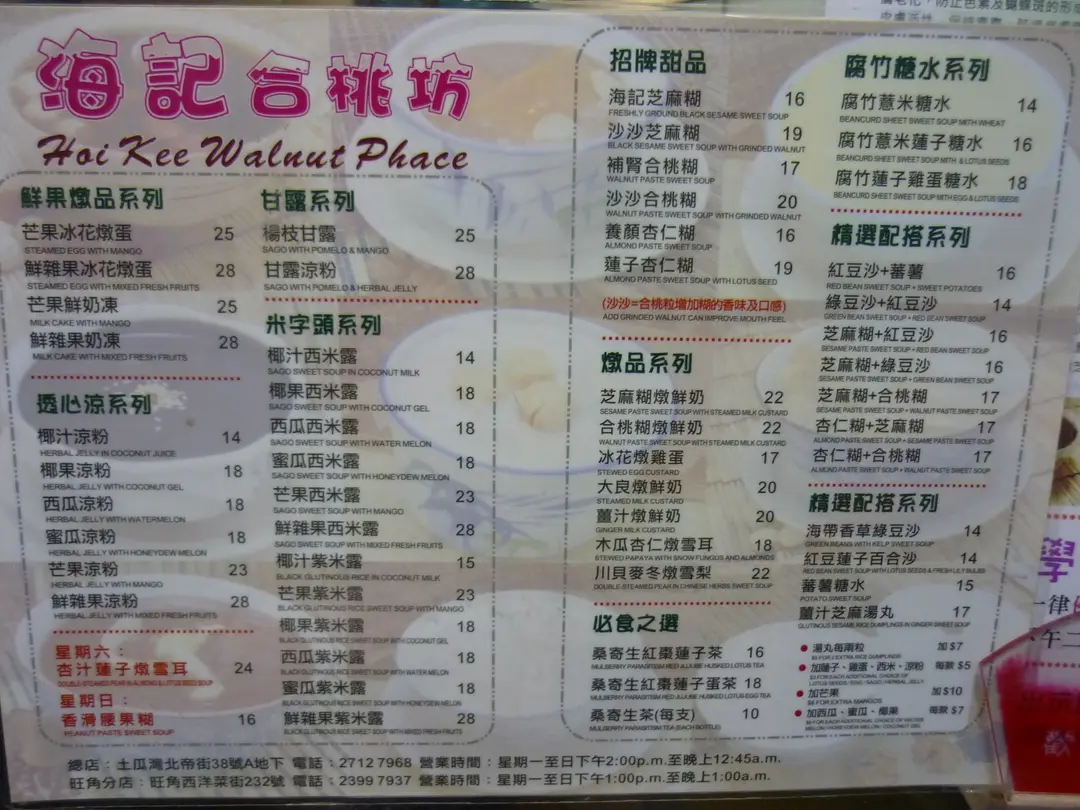 海記合桃坊
Hoi Kee Walnut Phace
鮮果燉品系列
芒果冰花燉蛋 25
STEAMED EGG WITH MANGO
鮮雜果冰花燉蛋 28
STEAMED EGG WITH MIXED FRESH FRUITS
芒果鮮奶凍 25
MILK CAKE WITH MANGO
鮮雜果奶凍 28
MILK CAKE WITH MIXED FRESH FRUITS
透心涼系列
椰汁涼粉 14
HERBAL JELLY IN COCONUT JUICE
椰果涼粉 18
HERBAL JELLY WITH COCONUT GEL
西瓜涼粉 18
HERBAL JELLY WITH WATERMELON
蜜瓜涼粉 18
HERBAL JELLY WITH HONEYDEW MELON
芒果涼粉 23
HERBAL JELLY WITH MANGO
鮮雜果涼粉 28
HERBAL JELLY WITH MIXED FRESH FRUITS
星期六：
杏汁蓮子燉雪耳 24
DOUBLE-STEAMED PEAR IN ALMOND & LOTUS SEED SOUP
星期日：
香滑腰果糊 16
PEANUT PASTE SWEET SOUP
甘露系列
楊枝甘露 25
SAGO WITH POMELO & MANGO
甘露涼粉 28
SAGO WITH POMELO & HERBAL JELLY
米字頭系列
椰汁西米露 14
SAGO SWEET SOUP IN COCONUT MILK
椰果西米露 18
SAGO SWEET SOUP WITH COCONUT GEL
西瓜西米露 18
SAGO SWEET SOUP WITH WATER MELON
蜜瓜西米露 18
SAGO SWEET SOUP WITH HONEYDEW MELON
芒果西米露 23
SAGO SWEET SOUP WITH MANGO
鮮雜果西米露 28
SAGO SWEET SOUP WITH MIXED FRESH FRUITS
椰汁紫米露 15
BLACK GLUTINOUS RICE IN COCONUT MILK
芒果紫米露 23
BLACK GLUTINOUS RICE SWEET SOUP WITH MANGO
椰果紫米露 18
BLACK GLUTINOUS RICE SWEET SOUP WITH COCONUT GEL
西瓜紫米露 18
BLACK GLUTINOUS RICE SWEET SOUP WITH WATER MELON
蜜瓜紫米露 18
BLACK GLUTINOUS RICE SWEET SOUP WITH HONEYDEW MELON
鮮雜果紫米露 28
BLACK GLUTINOUS RICE SWEET SOUP WITH MIXED FRESH FRUITS
招牌甜品
海記芝麻糊 16
FRESHLY GROUND BLACK SESAME SWEET SOUP
沙沙芝麻糊 19
BLACK SESAME SWEET SOUP WITH GRINDED WALNUT
補腎合桃糊 17
WALNUT PASTE SWEET SOUP
沙沙合桃糊 20
WALNUT PASTE SWEET SOUP WITH GRINDED WALNUT
養顏杏仁糊 16
ALMOND PASTE SWEET SOUP
蓮子杏仁糊 19
ALMOND PASTE SWEET SOUP WITH LOTUS SEED
(沙沙=合桃粒增加糊的香味及口感)
ADD GRINDED WALNUT CAN IMPROVE MOUTH FEEL
燉品系列
芝麻糊燉鮮奶 22
SESAME PASTE SWEET SOUP WITH STEAMED MILK CUSTARD
合桃糊燉鮮奶 22
WALNUT PASTE SWEET SOUP WITH STEAMED MILK CUSTARD
冰花燉雞蛋 17
STEWED EGG CUSTARD
大良燉鮮奶 20
STEAMED MILK CUSTARD
薑汁燉鮮奶 20
GINGER MILK CUSTARD
木瓜杏仁燉雪耳 18
STEWED PAPAYA WITH SNOW FUNGUS AND ALMONDS
川貝麥冬燉雪梨 22
DOUBLE-STEAMED PEAR IN CHINESE HERBS SWEET SOUP
必食之選
桑寄生紅棗蓮子茶 16
MULBERRY PARASITISM RED JUJUBE HUSKED LOTUS TEA
桑寄生紅棗蓮子蛋茶 18
MULBERRY PARASITISM RED JUJUBE HUSKED LOTUS EGG TEA
桑寄生茶(每支) 10
MULBERRY PARASITISM TEA (EACH BOTTLE)
腐竹糖水系列
腐竹薏米糖水 14
BEANCURD SHEET SWEET SOUP MITH WHEAT
腐竹薏米蓮子糖水 16
BEANCURD SHEET SWEET SOUP MITH & LOTUS SEEDS
腐竹蓮子雞蛋糖水 18
BEANCURD SHEET SWEET SOUP MITH EGG & LOTUS SEEDS
精選配搭系列
紅豆沙+蕃薯 16
RED BEAN SWEET SOUP + SWEET POTATOES
綠豆沙+紅豆沙 14
GREEN BEAN SWEET SOUP + RED BEAN SWEET SOUP
芝麻糊+紅豆沙 16
SESAME PASTE SWEET SOUP + RED BEAN SWEET SOUP
芝麻糊+綠豆沙 16
SESAME PASTE SWEET SOUP + GREEN BEAN SWEET SOUP
芝麻糊+合桃糊 17
SESAME PASTE SWEET SOUP + WALNUT PASTE SWEET SOUP
杏仁糊+芝麻糊 17
ALMOND PASTE SWEET SOUP + SESAME PASTE SWEET SOUP
杏仁糊+合桃糊 17
ALMOND PASTE SWEET SOUP + WALNUT PASTE SWEET SOUP
精選配搭系列
海帶香草綠豆沙 14
GREEN BEANS WITH KELP SWEET SOUP
紅豆蓮子百合沙 14
RED BEAN SWEET SOUP WITH LOTUS SEEDS & FRESH LILY BULBS
蕃薯糖水 15
POTATO SWEET SOUP
薑汁芝麻湯丸 17
GLUTINOUS SESAME RICE DUMPLINGS IN GINGER SWEET SOUP
湯丸每兩粒 加 $7
加蓮子、雞蛋、西米、涼粉 每款 $5
加芒果 加 $10
$6 FOR EXTRA MARGOS
加西瓜、蜜瓜、椰果 每款 $7
總店：土瓜灣北帝街38號A地下 電話：2712 7968 營業時間：星期一至日下午2:00p.m.至晚上12:45a.m.
旺角分店：旺角西洋菜街232號 電話：2399 7937 營業時間：星期一至日下午1:00p.m.至晚上1:00a.m.
學
一律
午二